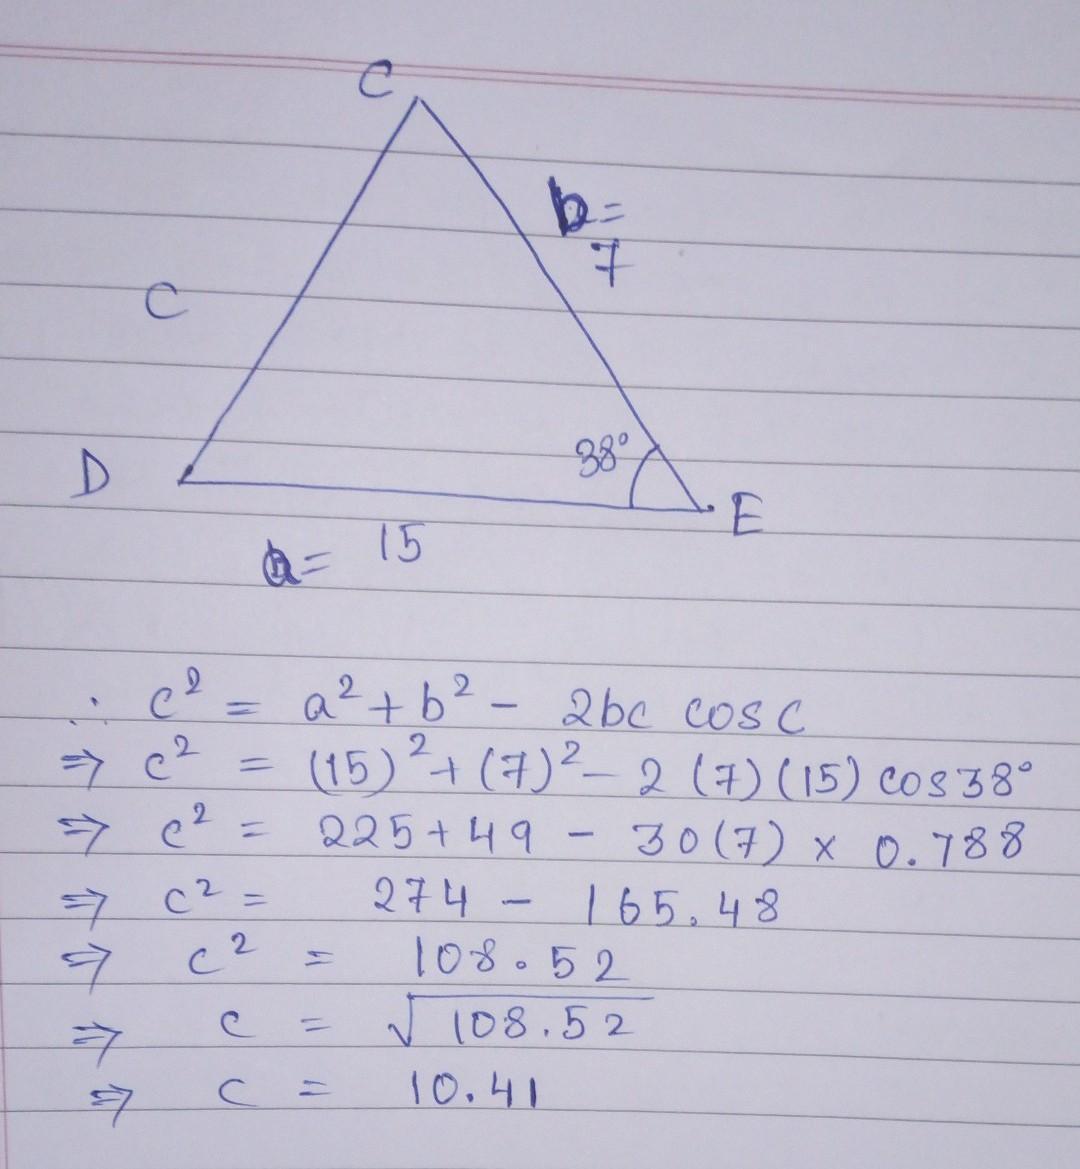 C
b=
7
C
38°
D
E
a= 15
∴ c² = a² + b² - 2bc cos c
⇒ c² = (15)² + (7)² - 2 (7) (15) cos 38°
⇒ c² = 225 + 49 - 30(7) x 0.788
⇒ c² = 274 - 165.48
⇒ c² = 108.52
⇒ c = √108.52
⇒ c = 10.41